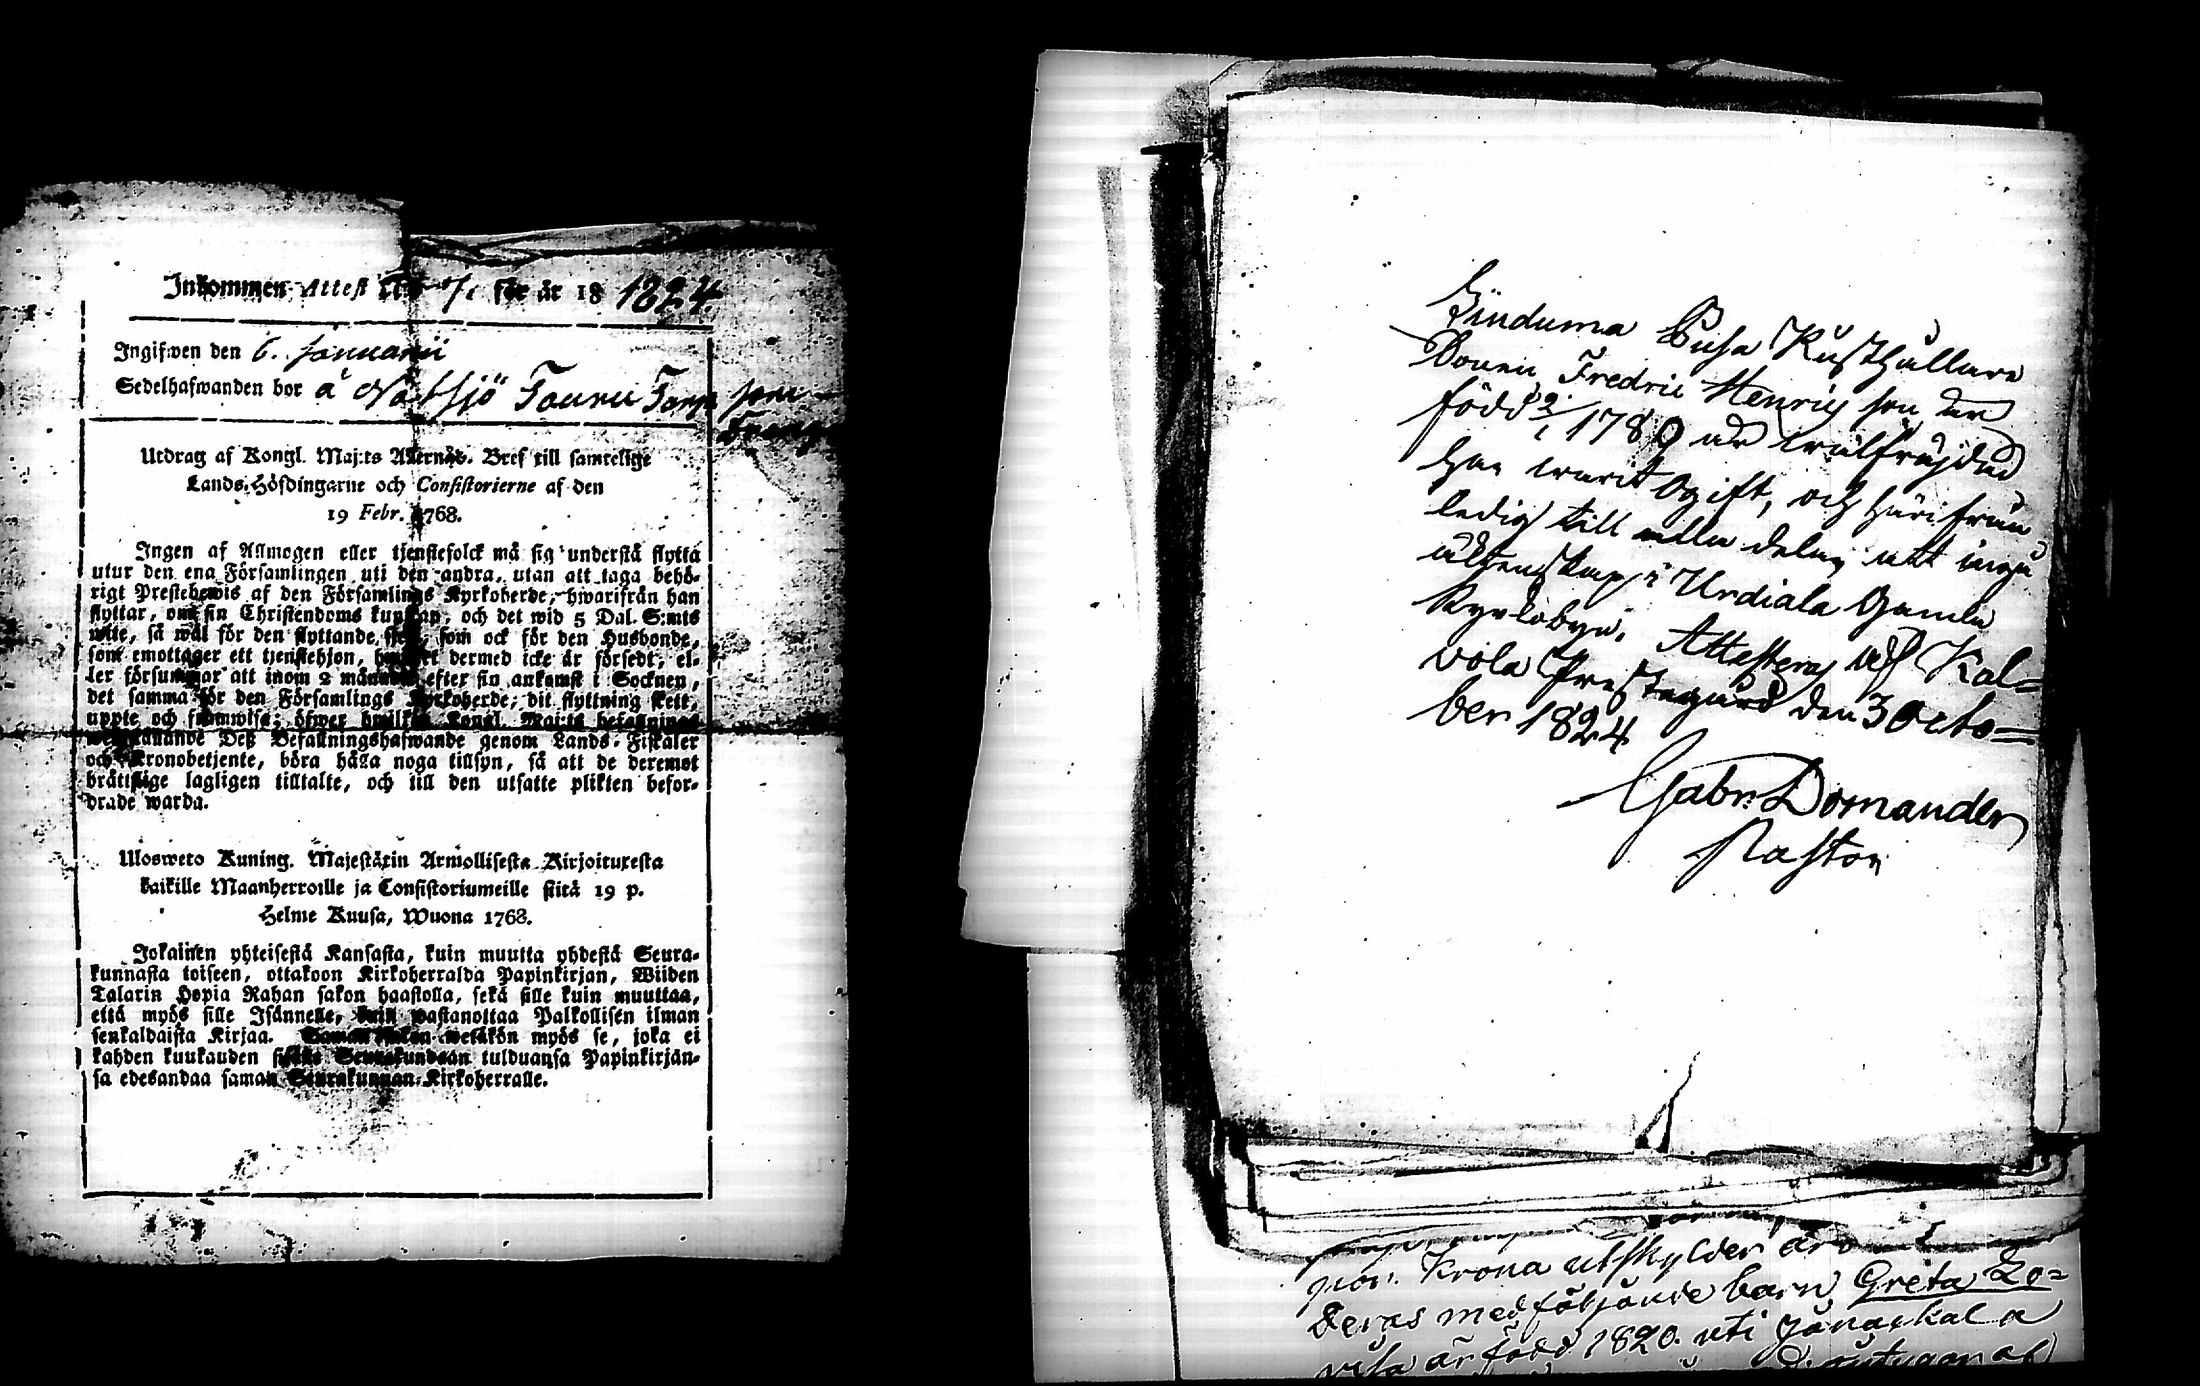 Inkommen Attest för år 18 1824
Ingifwen den 6. Januarii
Sedelhafwanden bor å
Utdrag af Kongl. Maj:ts Allernåd. Bref till samtelige
Lands-Höfdingarne och Consistorierne af den
19 Febr. 1768.
Ingen af Allmogen eller tjenstefolck må sig understå flytta
utur den ena Församlingen uti den andra, utan att taga behö-
rigt Prestebewis af den Församlings Kyrkoherde, hwarifrån han
flyttar, om sin Christendoms kunskap, och det wid 5 Dal. S:mts
wite, så wäl för den flyttande sielf, som ock för den Husbonde,
som emottager ett tjenstehjon, hwilket dermed icke är försedt, el-
ler försummar att inom 2 månader efter sin ankomst i Socknen,
det samma för den Församlings Kyrkoherde, dit flyttning skett,
uppte och framwisa; öfwer hwilket Kongl. Maj:ts befallnings
Deß Befallningshafwande genom Lands-Fiskaler
och Kronobetjente, böra hålla noga tillsyn, så att de deremot
bråttslige lagligen tilltalte, och till den utsatte plikten befor-
drade warda.
Ulosweto Kuning. Majestätin Armollisesta Kirjoituxesta
kaikille Maanherroille ja Consistoriumeille siitä 19 p.
Helme Kuusa, Wuona 1768.
Jokainen yhteisestä Kansasta, kuin muutta yhdestä Seura-
kunnasta toiseen, ottakoon Kirkoherralda Papinkirjan, Wiiden
Talarin Hopia Rahan sakon haastolla, sekä sille kuin muuttaa,
että myös sille Isännelle, kuin wastanottaa Palkollisen ilman
senkaldaista Kirjaa. Saman sakon wetäkön myös se, joka ei
kahden kuukauden sisälle Seurakundaan tulduansa Papinkirjan-
sa edesandaa saman Seurakunnan Kirkoherralle.
Rusthållare
Fredric Henricsson är
född 2/1 1780 är wälfräjdad
har warit Ogift, och härifrån
ledig till alla delar att ingå
äktenskap i Urdiala Gamla
Kyrkobyn. Attesteras af Kal=
vola Prestegård den 3 Octo=
ber 1824
Gabr. Domander
Pastor
Krona utskylder äro
Deras medföljande barn Greta Lo=
visa är född 1820. uti Janackala